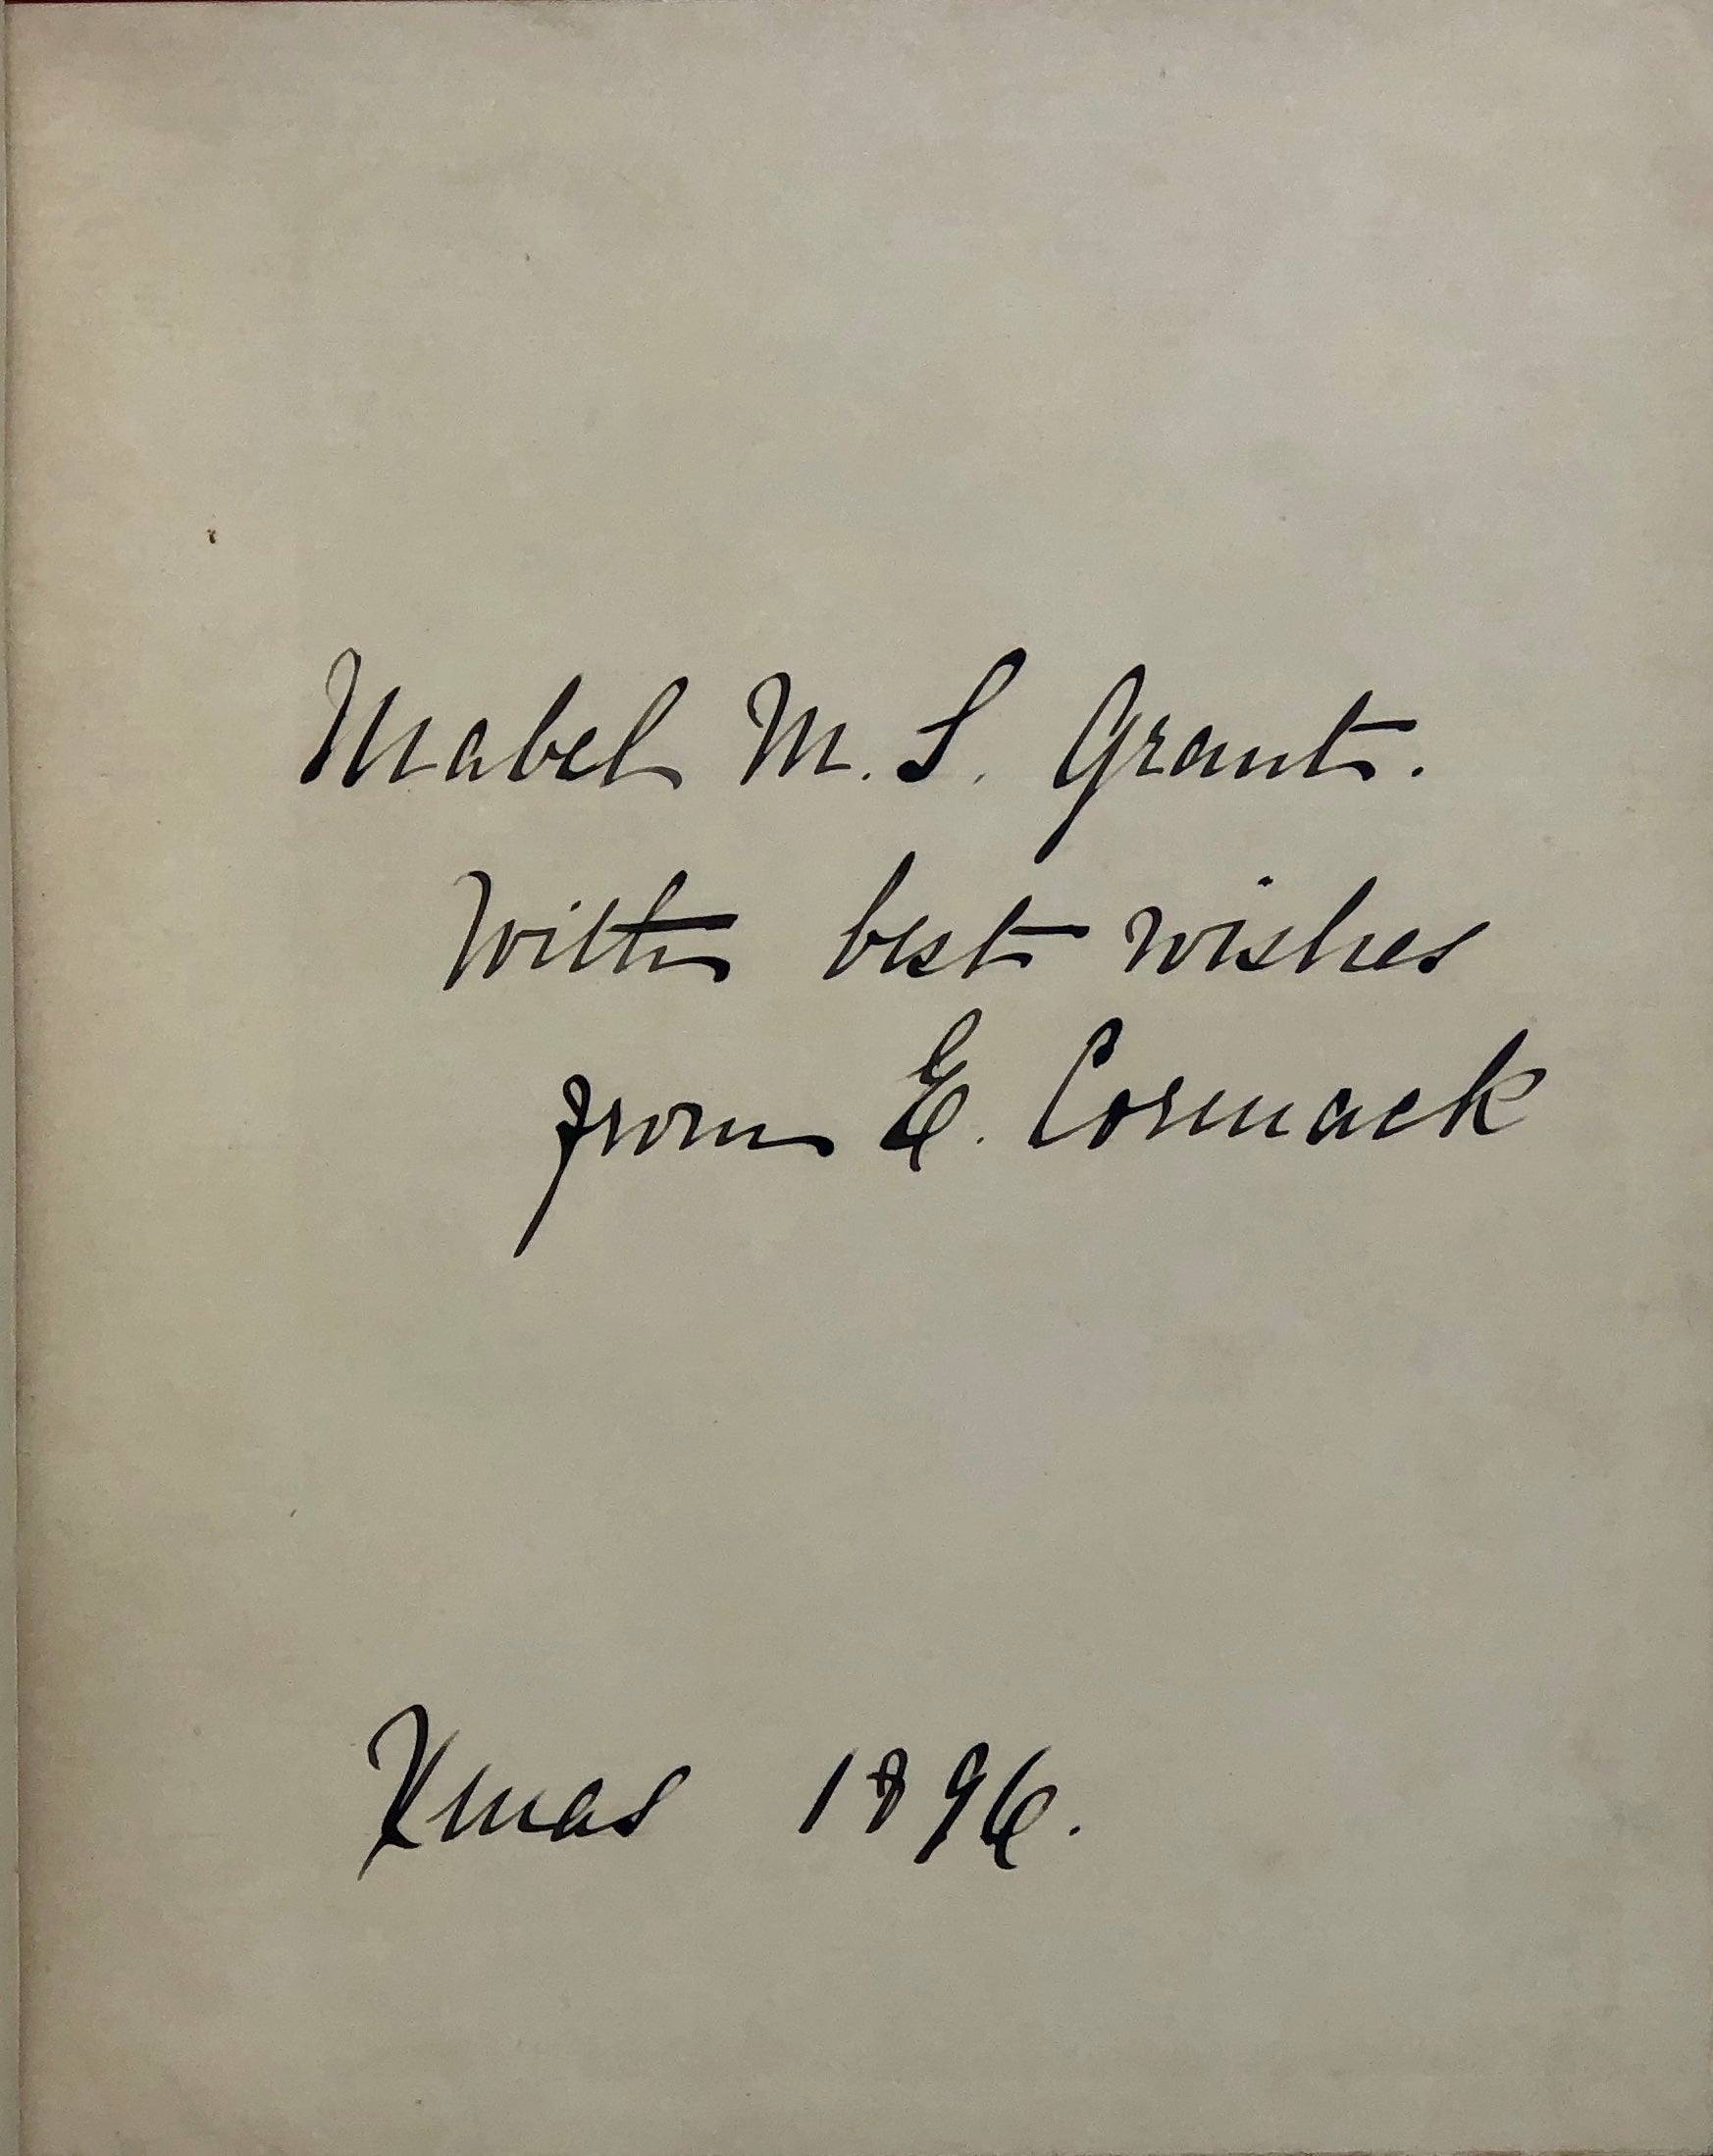 Mabel M. S. Grant.
With best wishes
from E. Cormack
Xmas 1896.